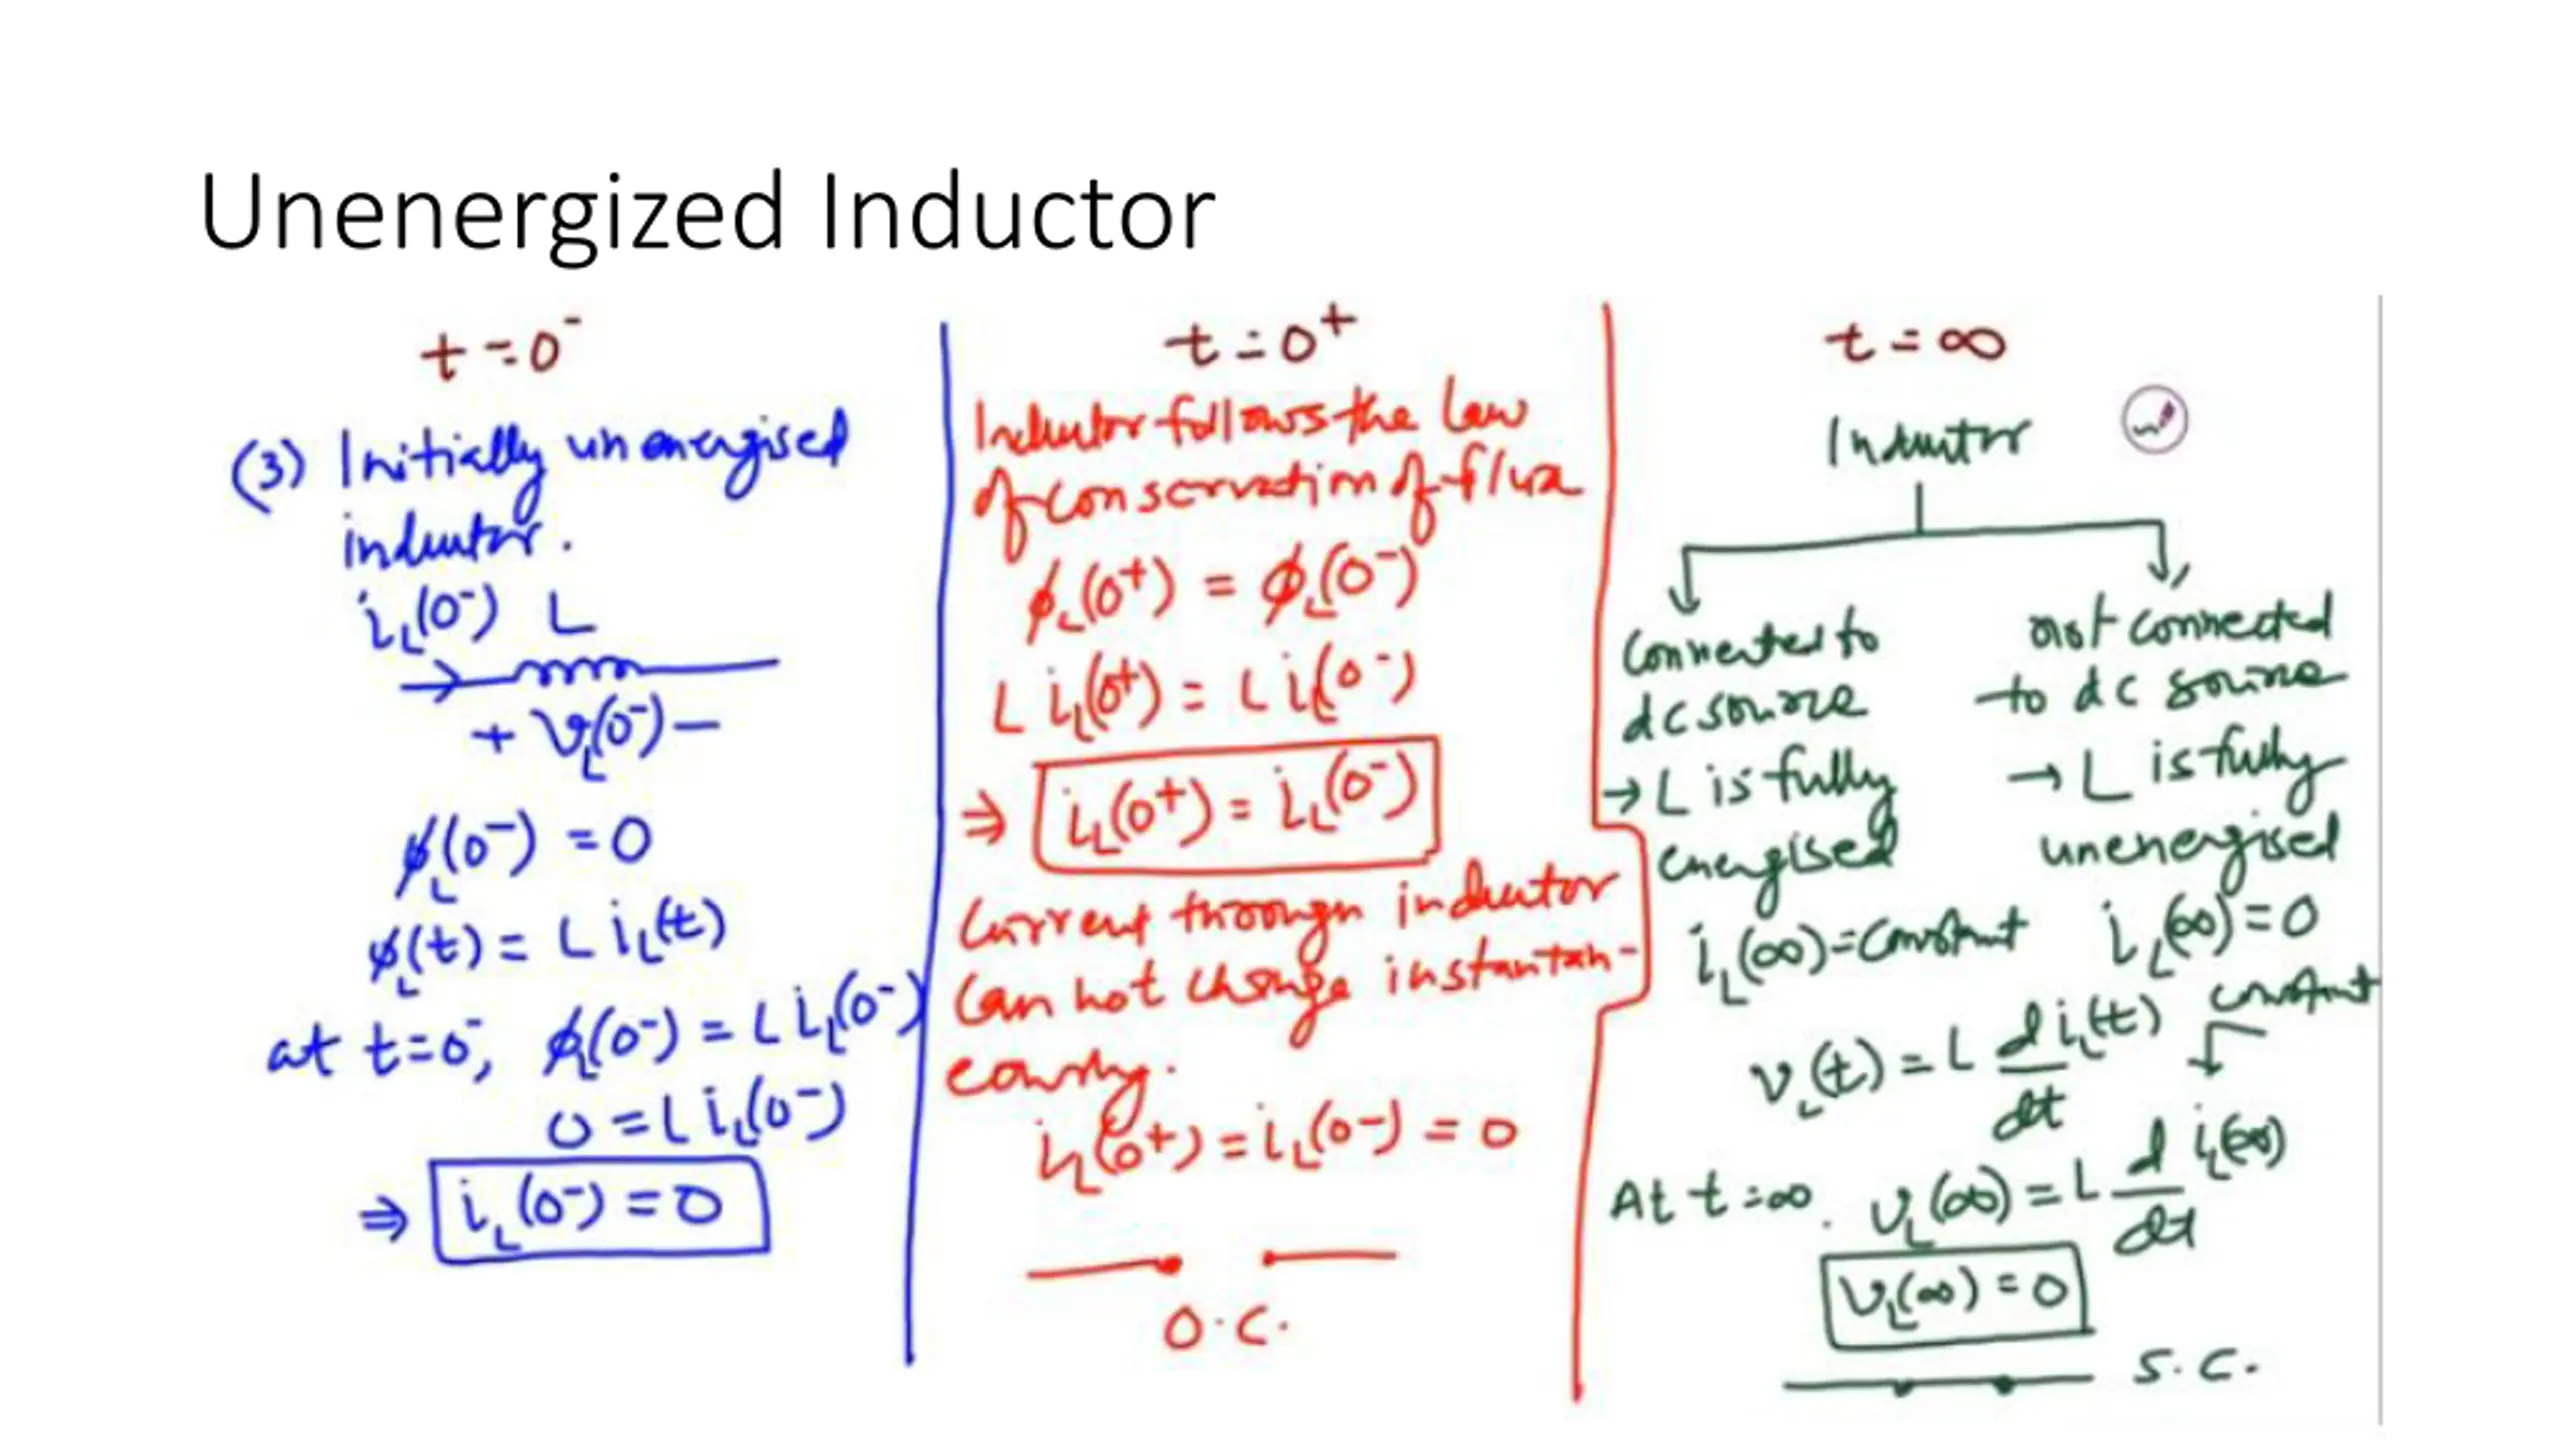 Unenergized Inductor
t = 0⁻
(3) Initially unenergised
inductor.
i_L(0⁻) L
+ v_L(0⁻) −
ϕ_L(0⁻) = 0
ϕ_L(t) = L i_L(t)
at t=0⁻, ϕ_L(0⁻) = L i_L(0⁻)
0 = L i_L(0⁻)
⇒ i_L(0⁻) = 0
t = 0⁺
Inductor follows the law
of conservation of flux
ϕ_L(0⁺) = ϕ_L(0⁻)
L i_L(0⁺) = L i_L(0⁻)
⇒ i_L(0⁺) = i_L(0⁻)
Current through inductor
can not change instantan-
eously.
i_L(0⁺) = i_L(0⁻) = 0
O.C.
t = ∞
Inductor
Connected to
dc source
→ L is fully
energised
i_L(∞) = constant
not connected
to dc source
→ L is fully
unenergised
i_L(∞) = 0
constant
v_L(t) = L d i_L(t) / dt
At t = ∞. v_L(∞) = L d/dt i_L(∞)
v_L(∞) = 0
S.C.